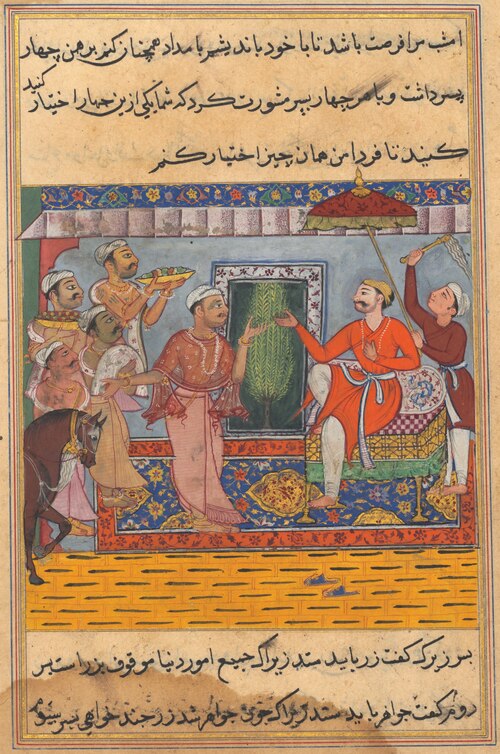 امشب مرا فرصت باشد تا با خود باندیشم بامداد همچنان کنم برهمن چهار
پسر داشت و با هر چهار پسر مشورت کرد که شما یکی ازین چهار اختیار
کنید
کنید تا فردا من همان چیز اختیار کنم
پسر بزرک گفت زر باید ستد زیراکه جمیع امور دنیا موقوف بزر است پسر
دوم گفت جواهر باید ستد زیراکه چون جواهر شد زر چند خواهی پسر سیوم